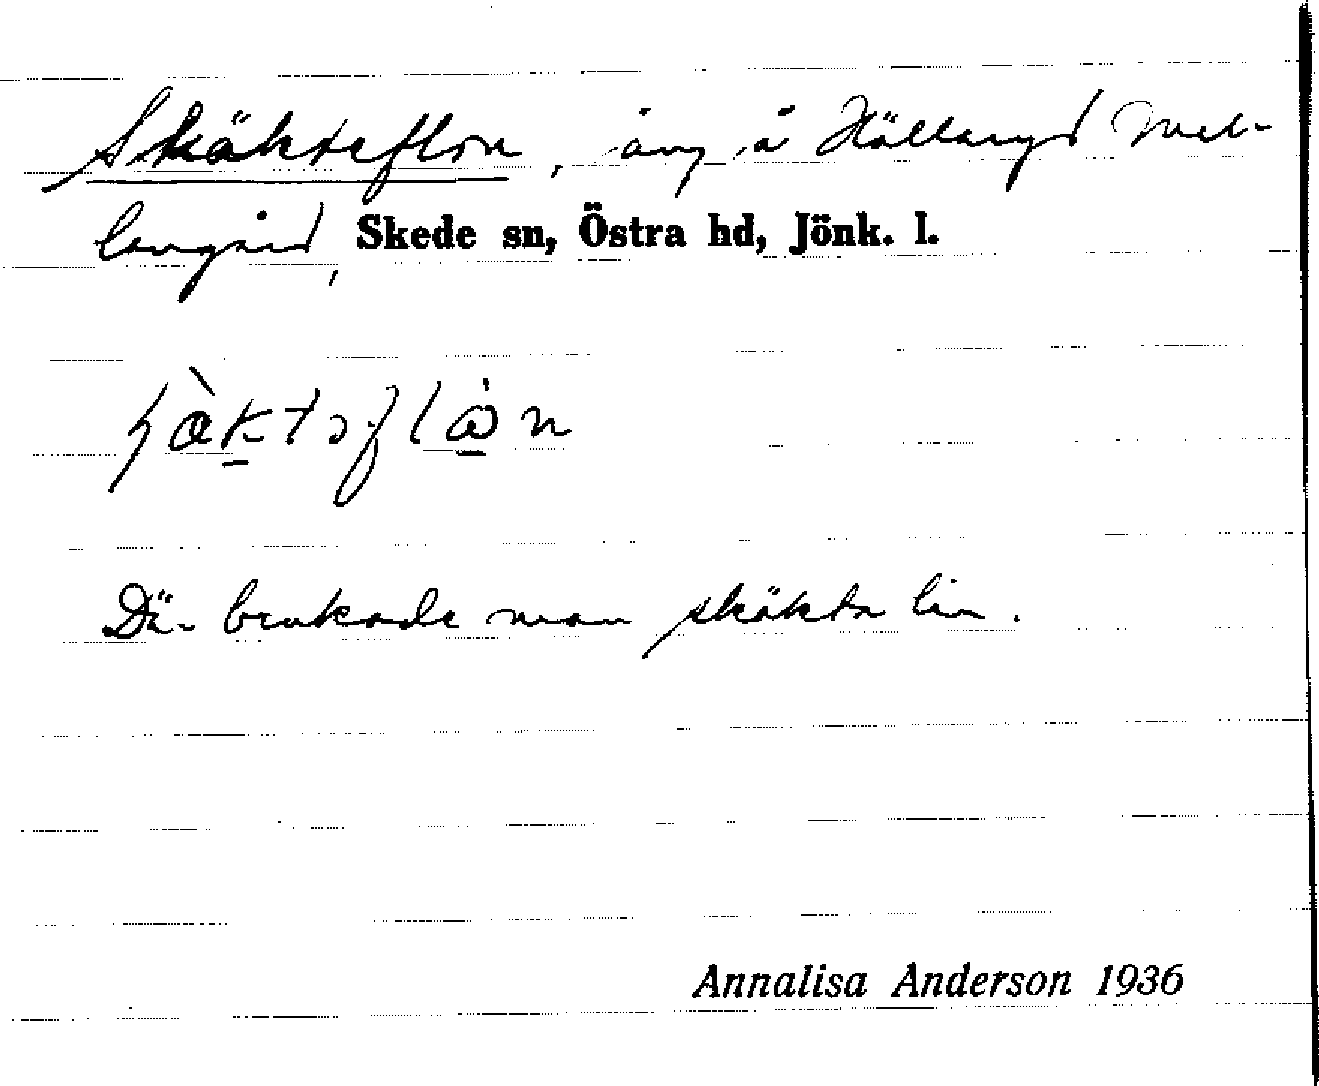 Skäkteflon, äng å Hällaryd Mel-
langård, Skede sn, Östra hd, Jönk. l.
Där brukade man skäkta lin.
Annalisa Anderson 1936